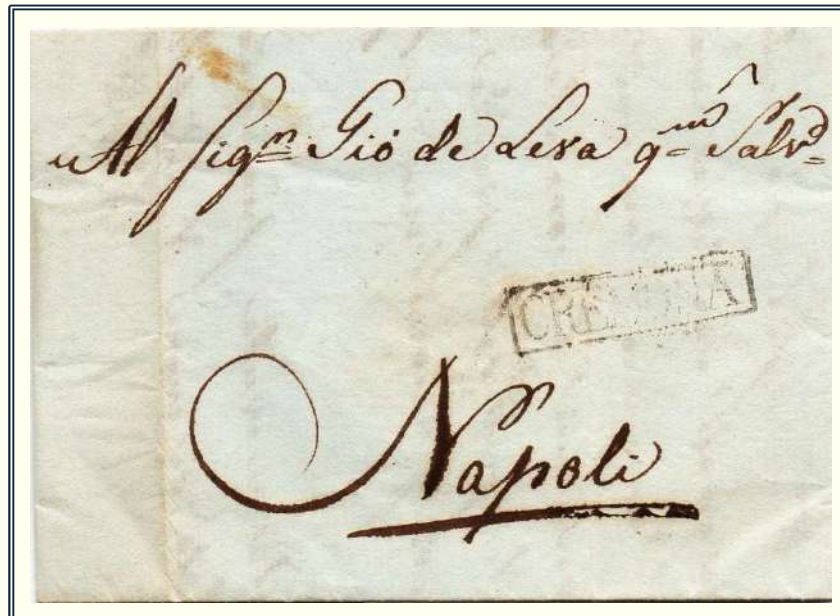 Al Sig.r Giò de Leva q.m Salv.e
CREMONA
Napoli